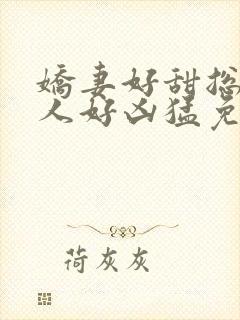 嬌妻好甜挩
人好凶猛免
荷灰灰